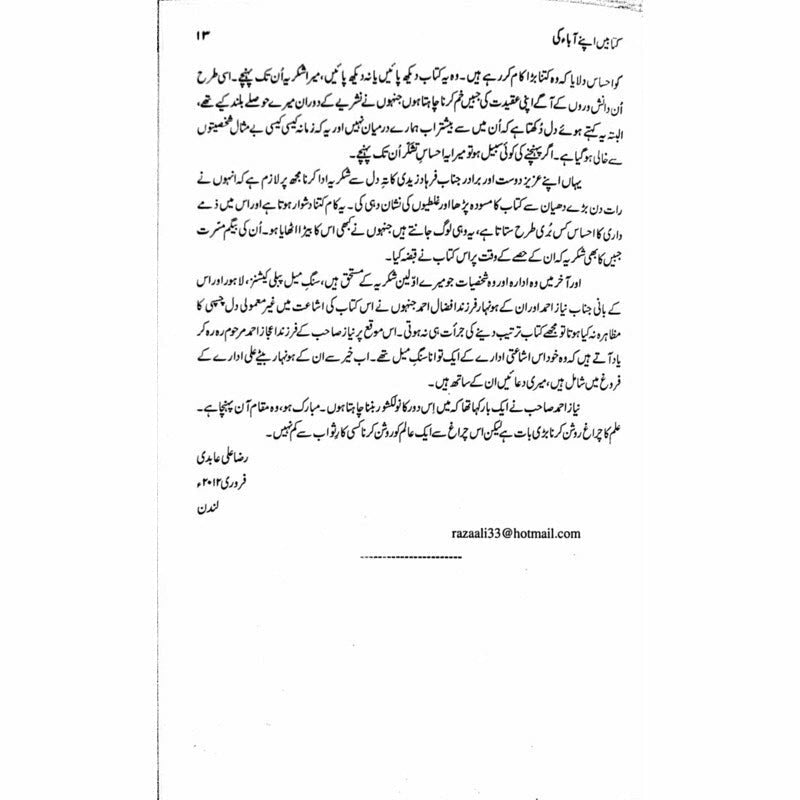 کتابیں اپنے آباء کی ۱۳
کو احساس دلایا کہ وہ کتنا بڑا کام کر رہے ہیں۔ وہ یہ کتاب دیکھ پائیں یا نہ دیکھ پائیں، میرا شکریہ اُن تک پہنچے۔ اسی طرح
اُن دانش وروں کے آگے اپنی عقیدت کی جبیں خم کرنا چاہتا ہوں جنہوں نے نشریے کے دوران میرے حوصلے بلند کیے تھے،
البتہ یہ کہتے ہوئے دل دُکھتا ہے کہ اُن میں سے بیشتر اب ہمارے درمیان نہیں اور یہ کہ زمانہ کیسی کیسی بے مثال شخصیتوں
سے خالی ہو گیا ہے۔ اگر پہنچنے کی کوئی سبیل ہو تو میرا یہ احساسِ تشکّر اُن تک پہنچے۔
یہاں اپنے عزیز دوست اور برادر جناب فرہاد زیدی کا تہِ دل سے شکریہ ادا کرنا مجھ پر لازم ہے کہ انہوں نے
رات دن بڑے دھیان سے کتاب کا مسودہ پڑھا اور غلطیوں کی نشان دہی کی۔ یہ کام کتنا دشوار ہوتا ہے اور اس میں ذمے
داری کا احساس کس بُری طرح ستاتا ہے، یہ وہی لوگ جانتے ہیں جنہوں نے کبھی اس کا بیڑا اٹھایا ہو۔ اُن کی بیگم مسرت
جبیں کا بھی شکریہ کہ ان کے حصے کے وقت پر اس کتاب نے قبضہ کیا۔
اور آخر میں وہ ادارہ اور وہ شخصیات جو میرے اوّلین شکریہ کے مستحق ہیں، سنگِ میل پبلی کیشنز، لاہور اور اس
کے بانی جناب نیاز احمد اور ان کے ہونہار فرزند افضال احمد جنہوں نے اس کتاب کی اشاعت میں غیر معمولی دل چسپی کا
مظاہرہ نہ کیا ہوتا تو مجھے کتاب ترتیب دینے کی جرأت ہی نہ ہوتی۔ اس موقع پر نیاز صاحب کے فرزند اعجاز احمد مرحوم رہ رہ کر
یاد آتے ہیں کہ وہ خود اس اشاعتی ادارے کے ایک توانا سنگِ میل تھے۔ اب خیر سے ان کے ہونہار بیٹے علی ادارے کے
فروغ میں شامل ہیں، میری دعائیں ان کے ساتھ ہیں۔
نیاز احمد صاحب نے ایک بار کہا تھا کہ میں اِس دور کا نولکشور بننا چاہتا ہوں۔ مبارک ہو، وہ مقام آن پہنچا ہے۔
علم کا چراغ روشن کرنا بڑی بات ہے لیکن اس چراغ سے ایک عالم کو روشن کرنا کسی کارِ ثواب سے کم نہیں۔
رضا علی عابدی
فروری ۲۰۱۲ء
لندن
razaali33@hotmail.com